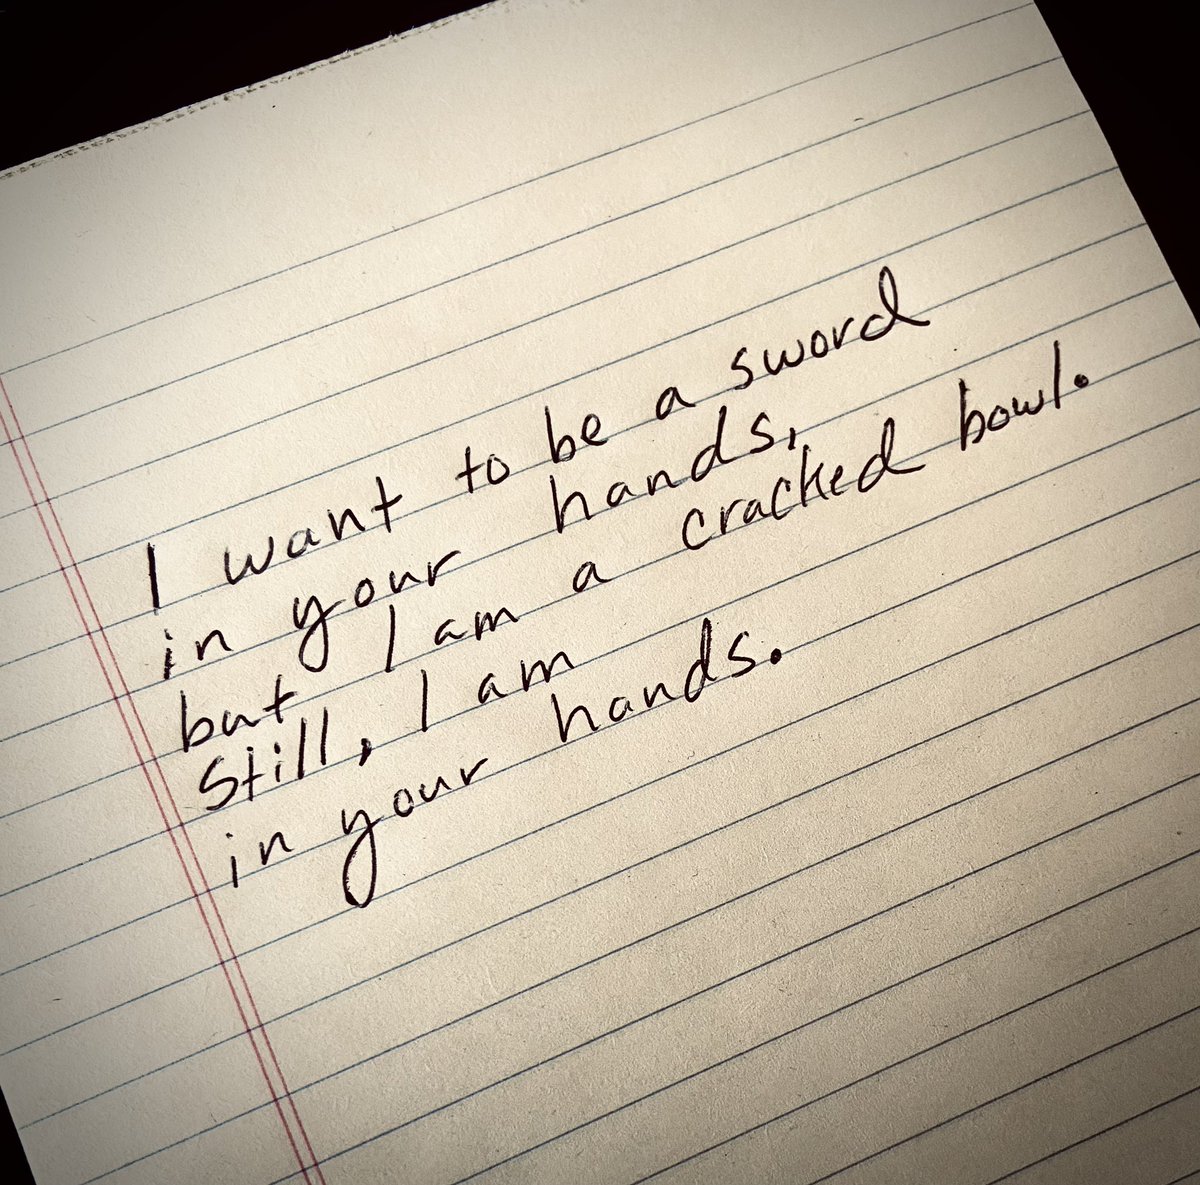 I want to be a sword
in your hands,
but I am a cracked bowl.
Still, I am
in your hands.